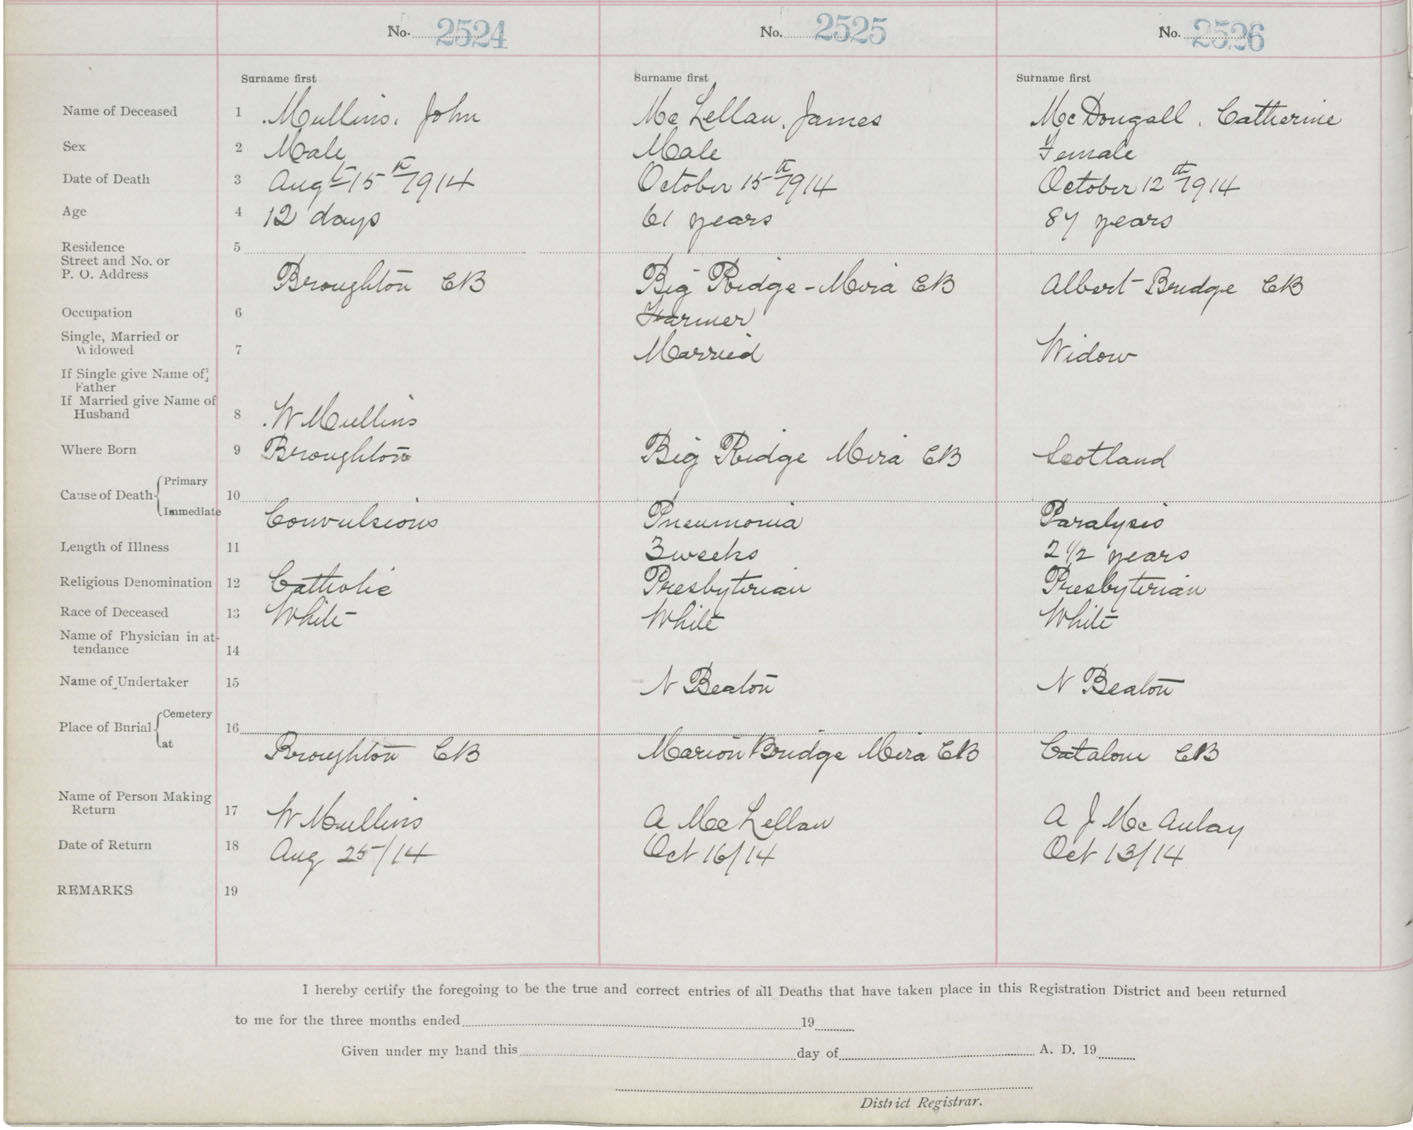 No. 2524 No. 2525 No. 2526
Surname first Surname first Surname first
Name of Deceased 1 Mullins, John McLellan, James McDougall, Catherine
Sex 2 Male Male Female
Date of Death 3 Augt 15th 1914 October 15th 1914 October 12th 1914
Age 4 12 days 61 years 87 years
Residence 5
Street and No. or
P. O. Address Broughton CB Big Ridge - Mira CB Albert Bridge CB
Occupation 6 Farmer
Single, Married or
Widowed 7 Married Widow
If Single give Name of
Father
If Married give Name of
Husband 8 W Mullins
Where Born 9 Broughton Big Ridge Mira CB Scotland
Primary
Cause of Death 10
Immediate Convulsions Pneumonia Paralysis
Length of Illness 11 3 weeks 2 1/2 years
Religious Denomination 12 Catholic Presbyterian Presbyterian
Race of Deceased 13 White White White
Name of Physician in at-
tendance 14
Name of Undertaker 15 N Beaton N Beaton
Cemetery
Place of Burial 16
at Broughton CB Marion Bridge Mira CB Catalone CB
Name of Person Making
Return 17 W Mullins A McLellan A J McAulay
Date of Return 18 Aug 25/14 Oct 16/14 Oct 13/14
REMARKS 19
I hereby certify the foregoing to be the true and correct entries of all Deaths that have taken place in this Registration District and been returned
to me for the three months ended 19
Given under my hand this day of A. D. 19
District Registrar.